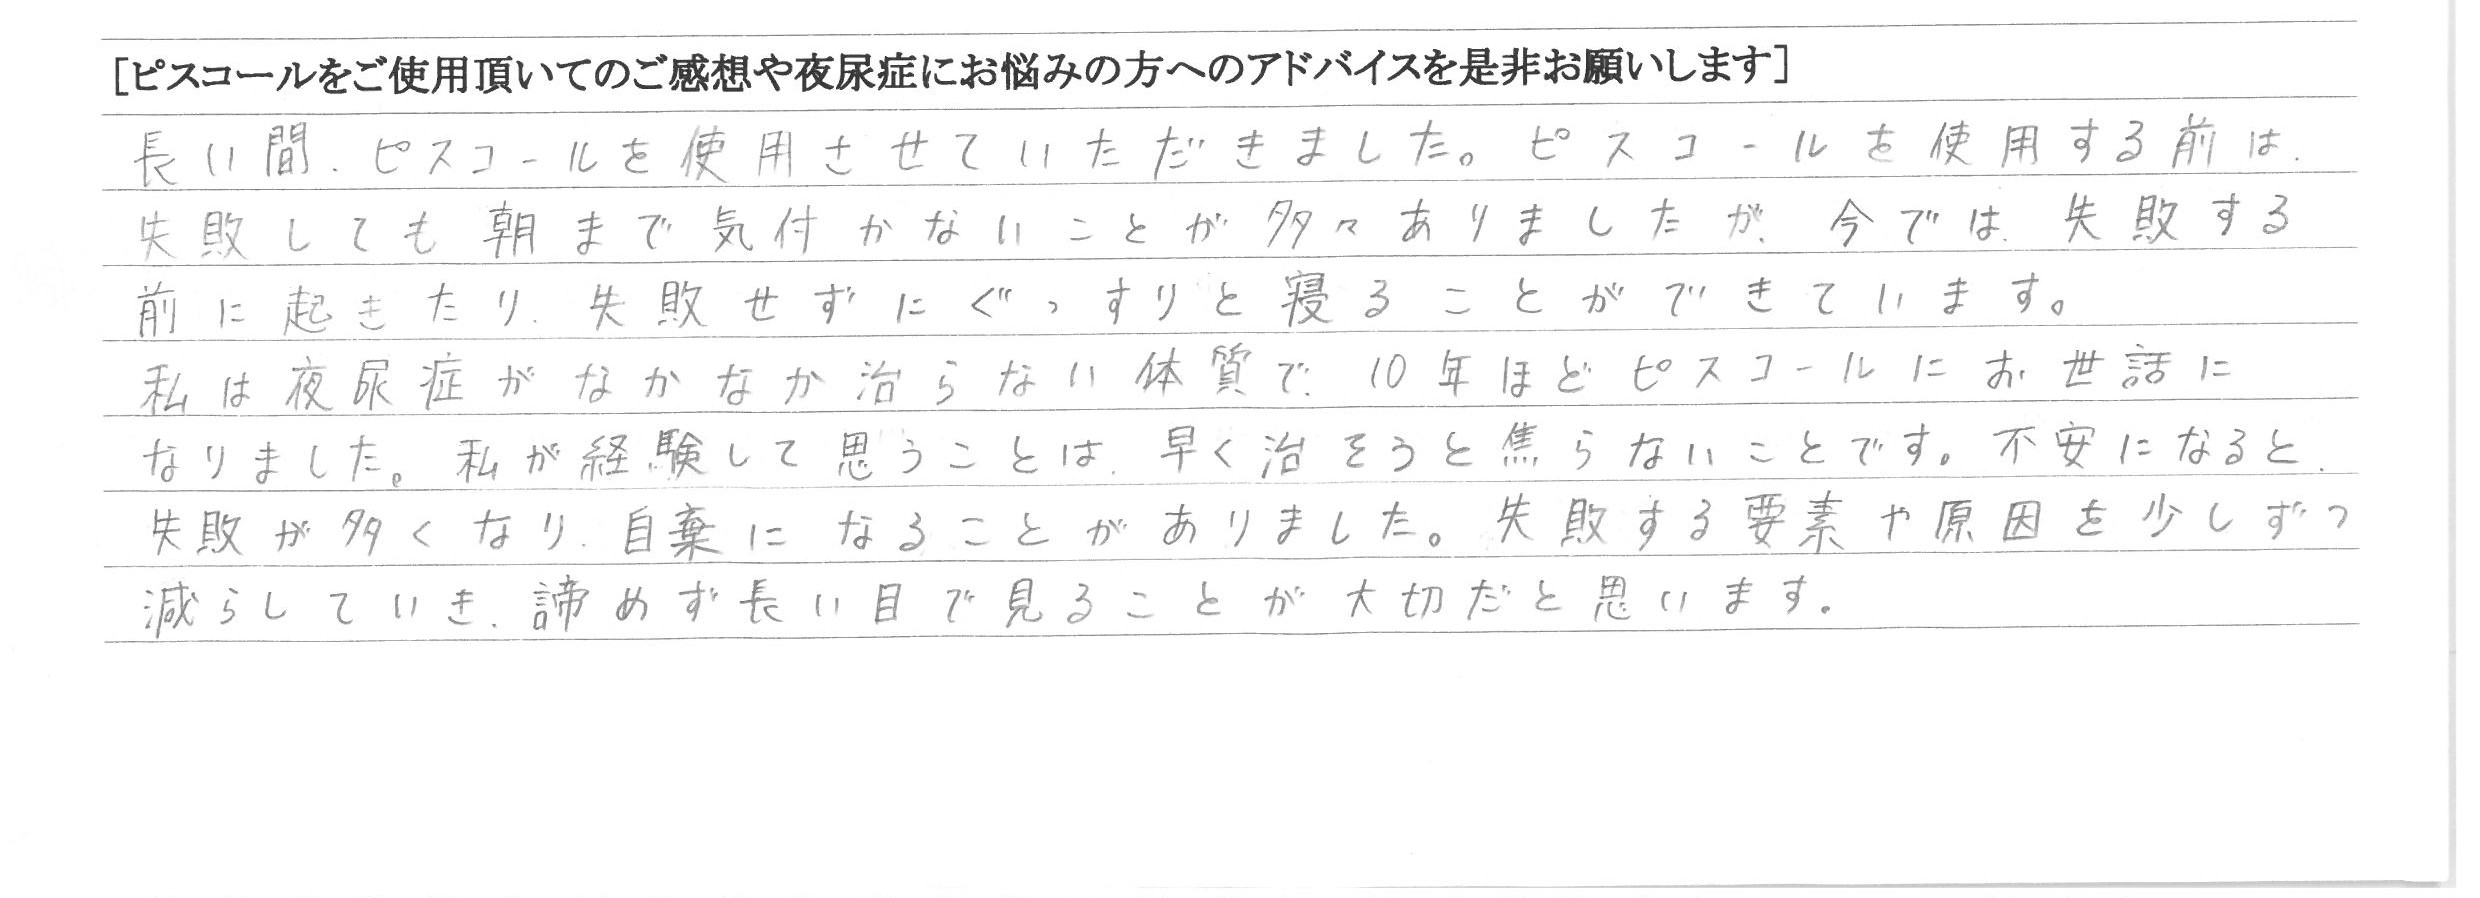 [ピスコールをご使用頂いてのご感想や夜尿症にお悩みの方へのアドバイスを是非お願いします]
長い間、ピスコールを使用させていただきました。ピスコールを使用する前は、
失敗しても朝まで気付かないことが多々ありましたが、今では、失敗する
前に起きたり、失敗せずにぐっすりと寝ることができています。
私は夜尿症がなかなか治らない体質で、10年ほどピスコールにお世話に
なりました。私が経験して思うことは、早く治そうと焦らないことです。不安になると、
失敗が多くなり、自棄になることがありました。失敗する要素や原因を少しずつ
減らしていき、諦めず長い目で見ることが大切だと思います。